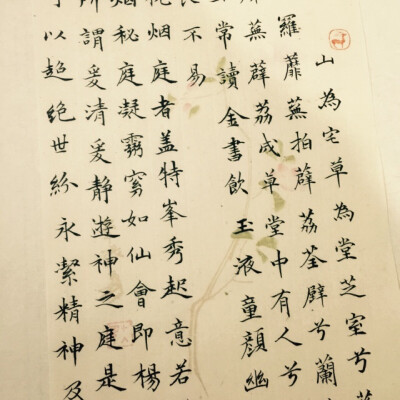 山為宅草為堂芝室兮
羅蘼蕪拍薜荔荃壁兮蘭
蕪薜荔成草堂中有人兮
常讀金書飲玉液童顏幽
不易
烟庭者蓋特峯秀起意若
烟秘庭凝霧窅如仙會即楊
所謂爰清爰静遊神之庭是
以超絕世紛永縶精神及